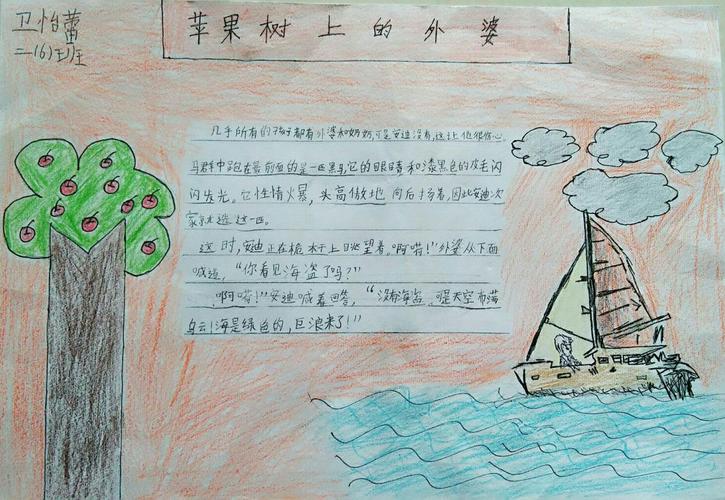 卫怡蕾
二(6)班
苹果树上的外婆
几乎所有的孩子都有外婆和奶奶,可是安迪没有,这让他很伤心。
马群中跑在最前面的是一匹黑马,它的眼睛和漆黑色的皮毛闪
闪发光。它性情火爆,头高傲地向后扬着,因此安迪决
定就选这一匹。
这时,安迪正在桅杆上眺望着。“啊嗬!”外婆从下面
喊道,“你看见海盗了吗?”
“啊嗬!”安迪喊着回答,“没有海盗,可是天空布满
乌云!海是绿色的,巨浪来了!”